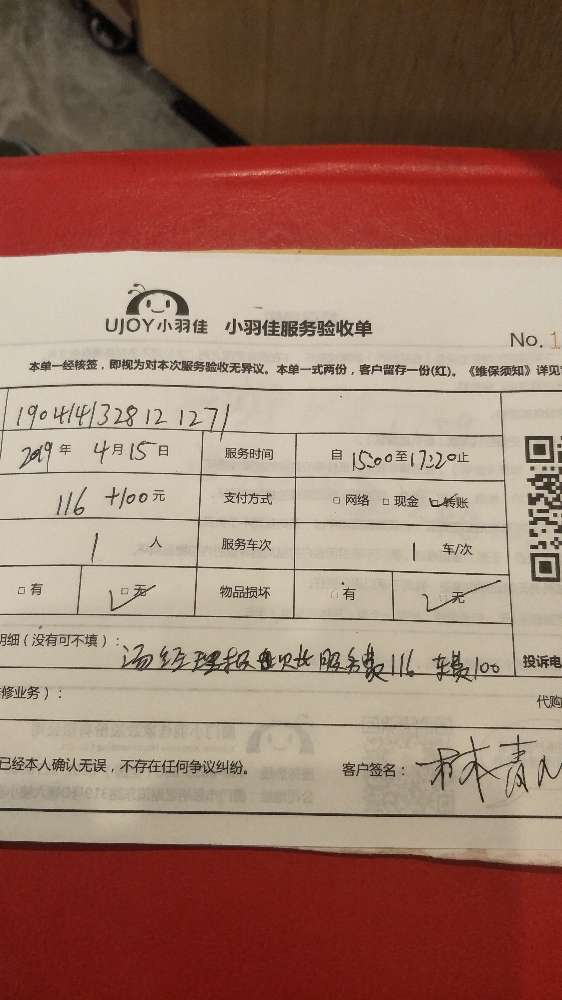 UJOY小羽佳 小羽佳服务验收单
No. 1
本单一经核签，即视为对本次服务验收无异议。本单一式两份，客户留存一份(红)。《维保须知》详见
1904141328121271
2019 年 4 月 15 日 服务时间 自 15:00 至 17:20 止
116 +100 元 支付方式 □ 网络 □ 现金 □ 转账
1 人 服务车次 1 车/次
□ 有 □ 无 物品损坏 □ 有 □ 无
明细（没有可不填）： 汤经理报 此服务费116 车费100
投诉电
修业务）：
代购
已经本人确认无误，不存在任何争议纠纷。 客户签名： 林青